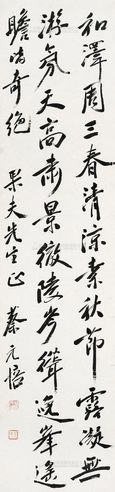 和澤周三春清涼素秋節露凝無
游氛天高肅景澈陵岑聳逸峯遙
瞻皆奇絕 果夫先生正 蔡元培